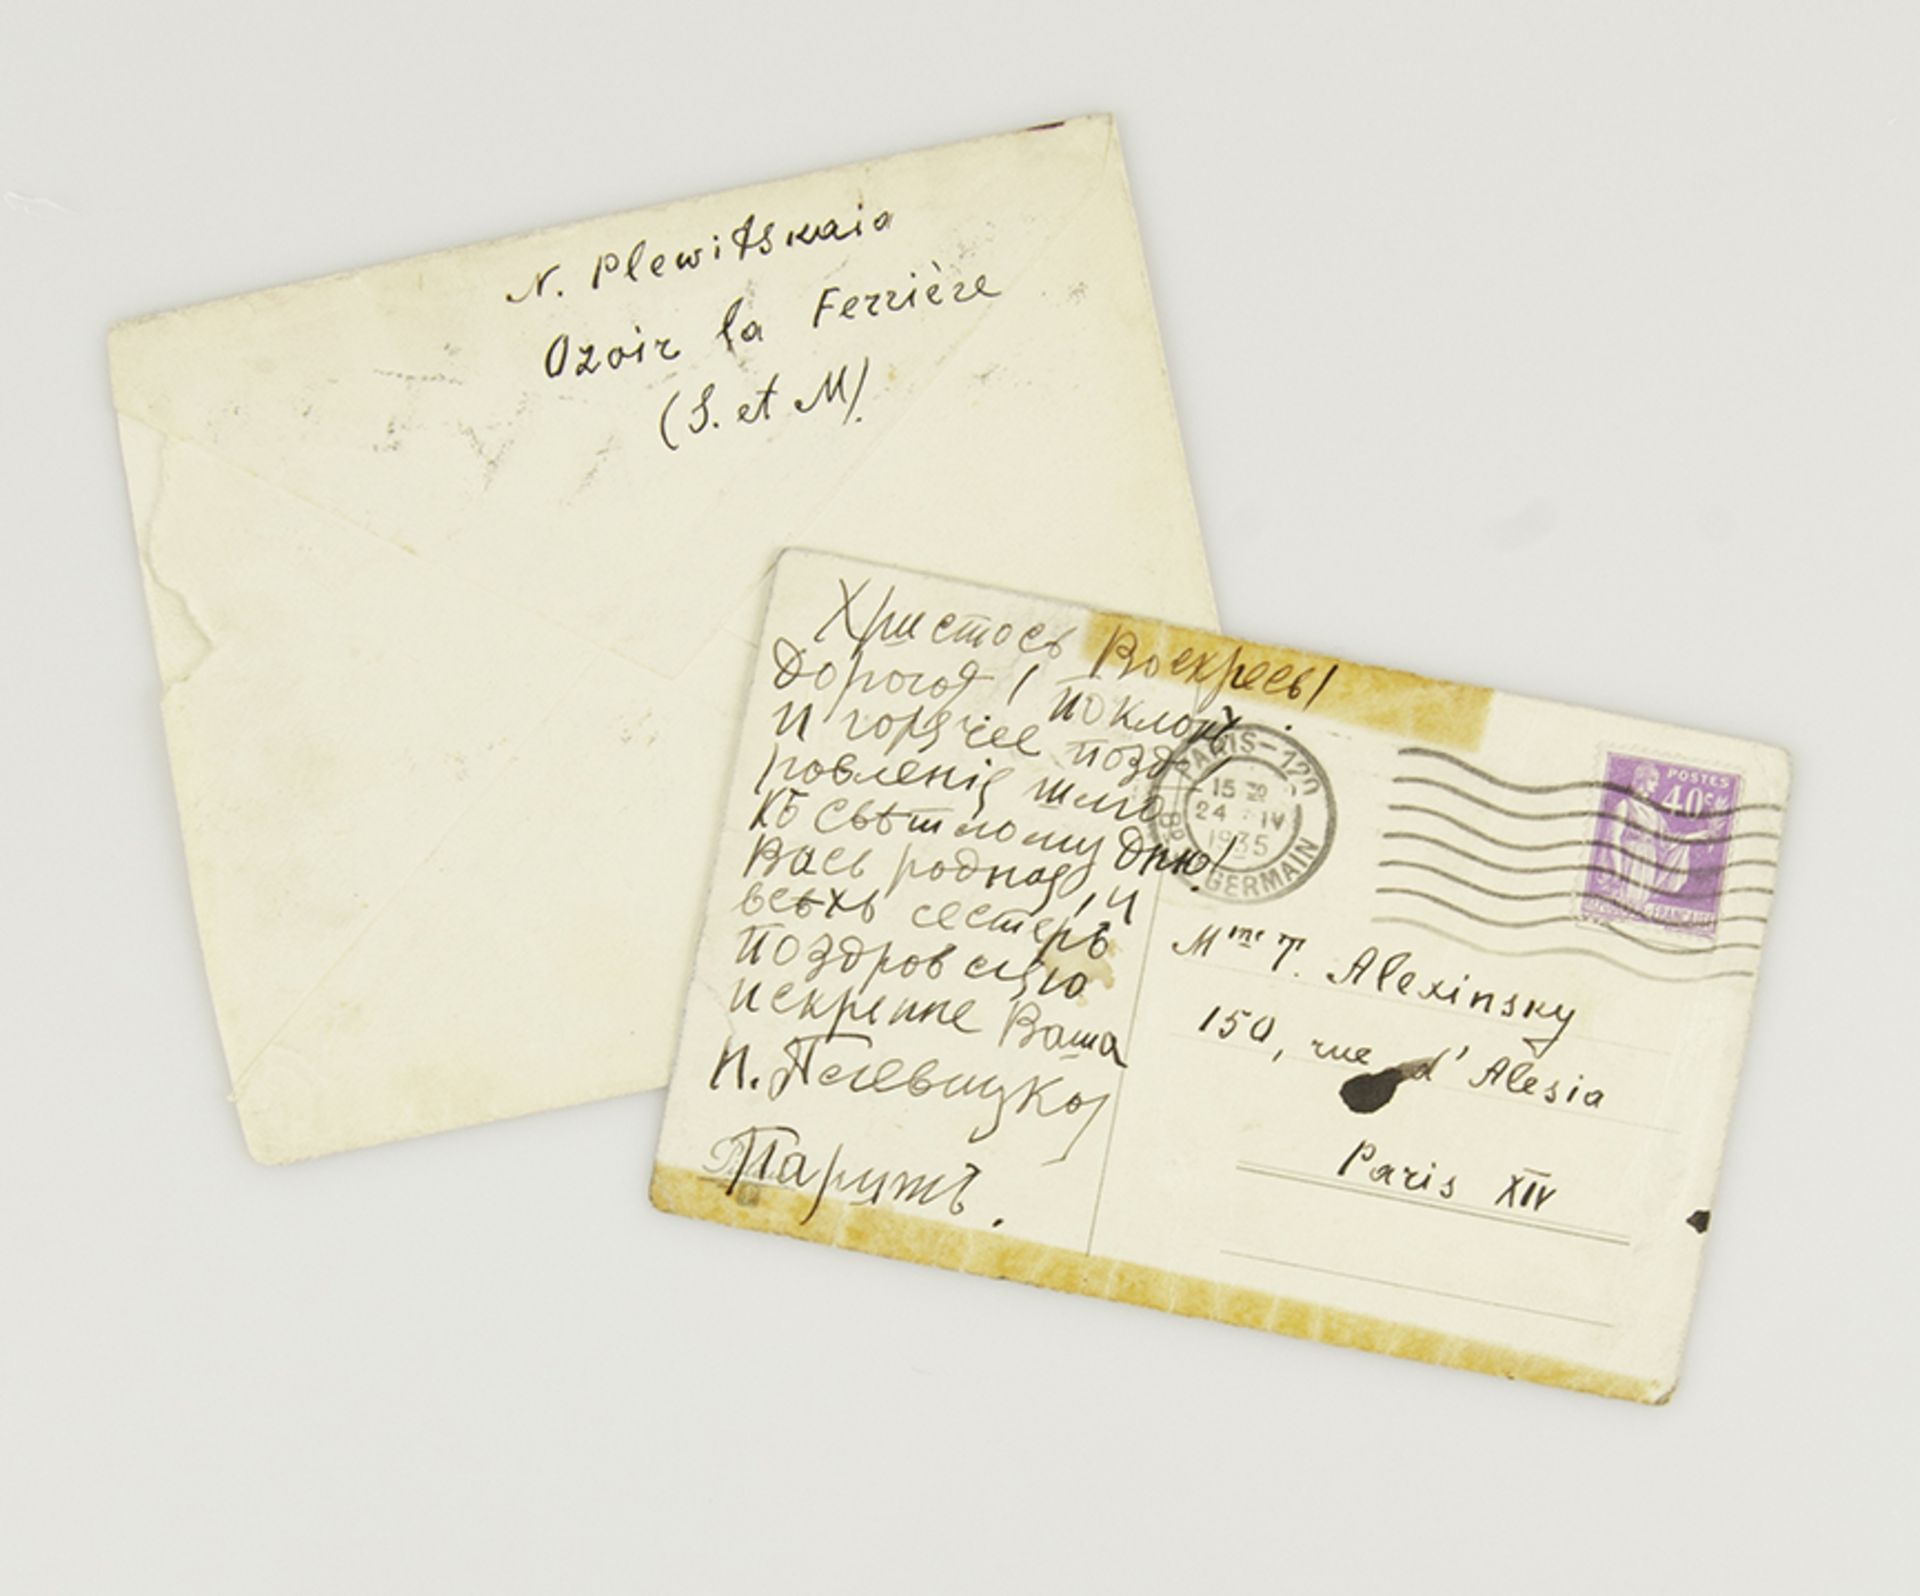 N. Plewitskaia
Ozoir la Ferrière
(S. et M).
Христосъ Воскресъ!
Дорогая! поклонъ
и горячее позд
ровленія шлю
къ свѣтлому дню!
Васъ родная, и
всѣхъ сестеръ
поздровляю
искренне Ваша
Н. Плевицкая
Парижъ.
PARIS-120
15 30
24 IV
1935
GERMAIN
POSTES
40c
FRANÇAISE
Mme T. Alexinsky
150, rue d'Alesia
Paris XIV